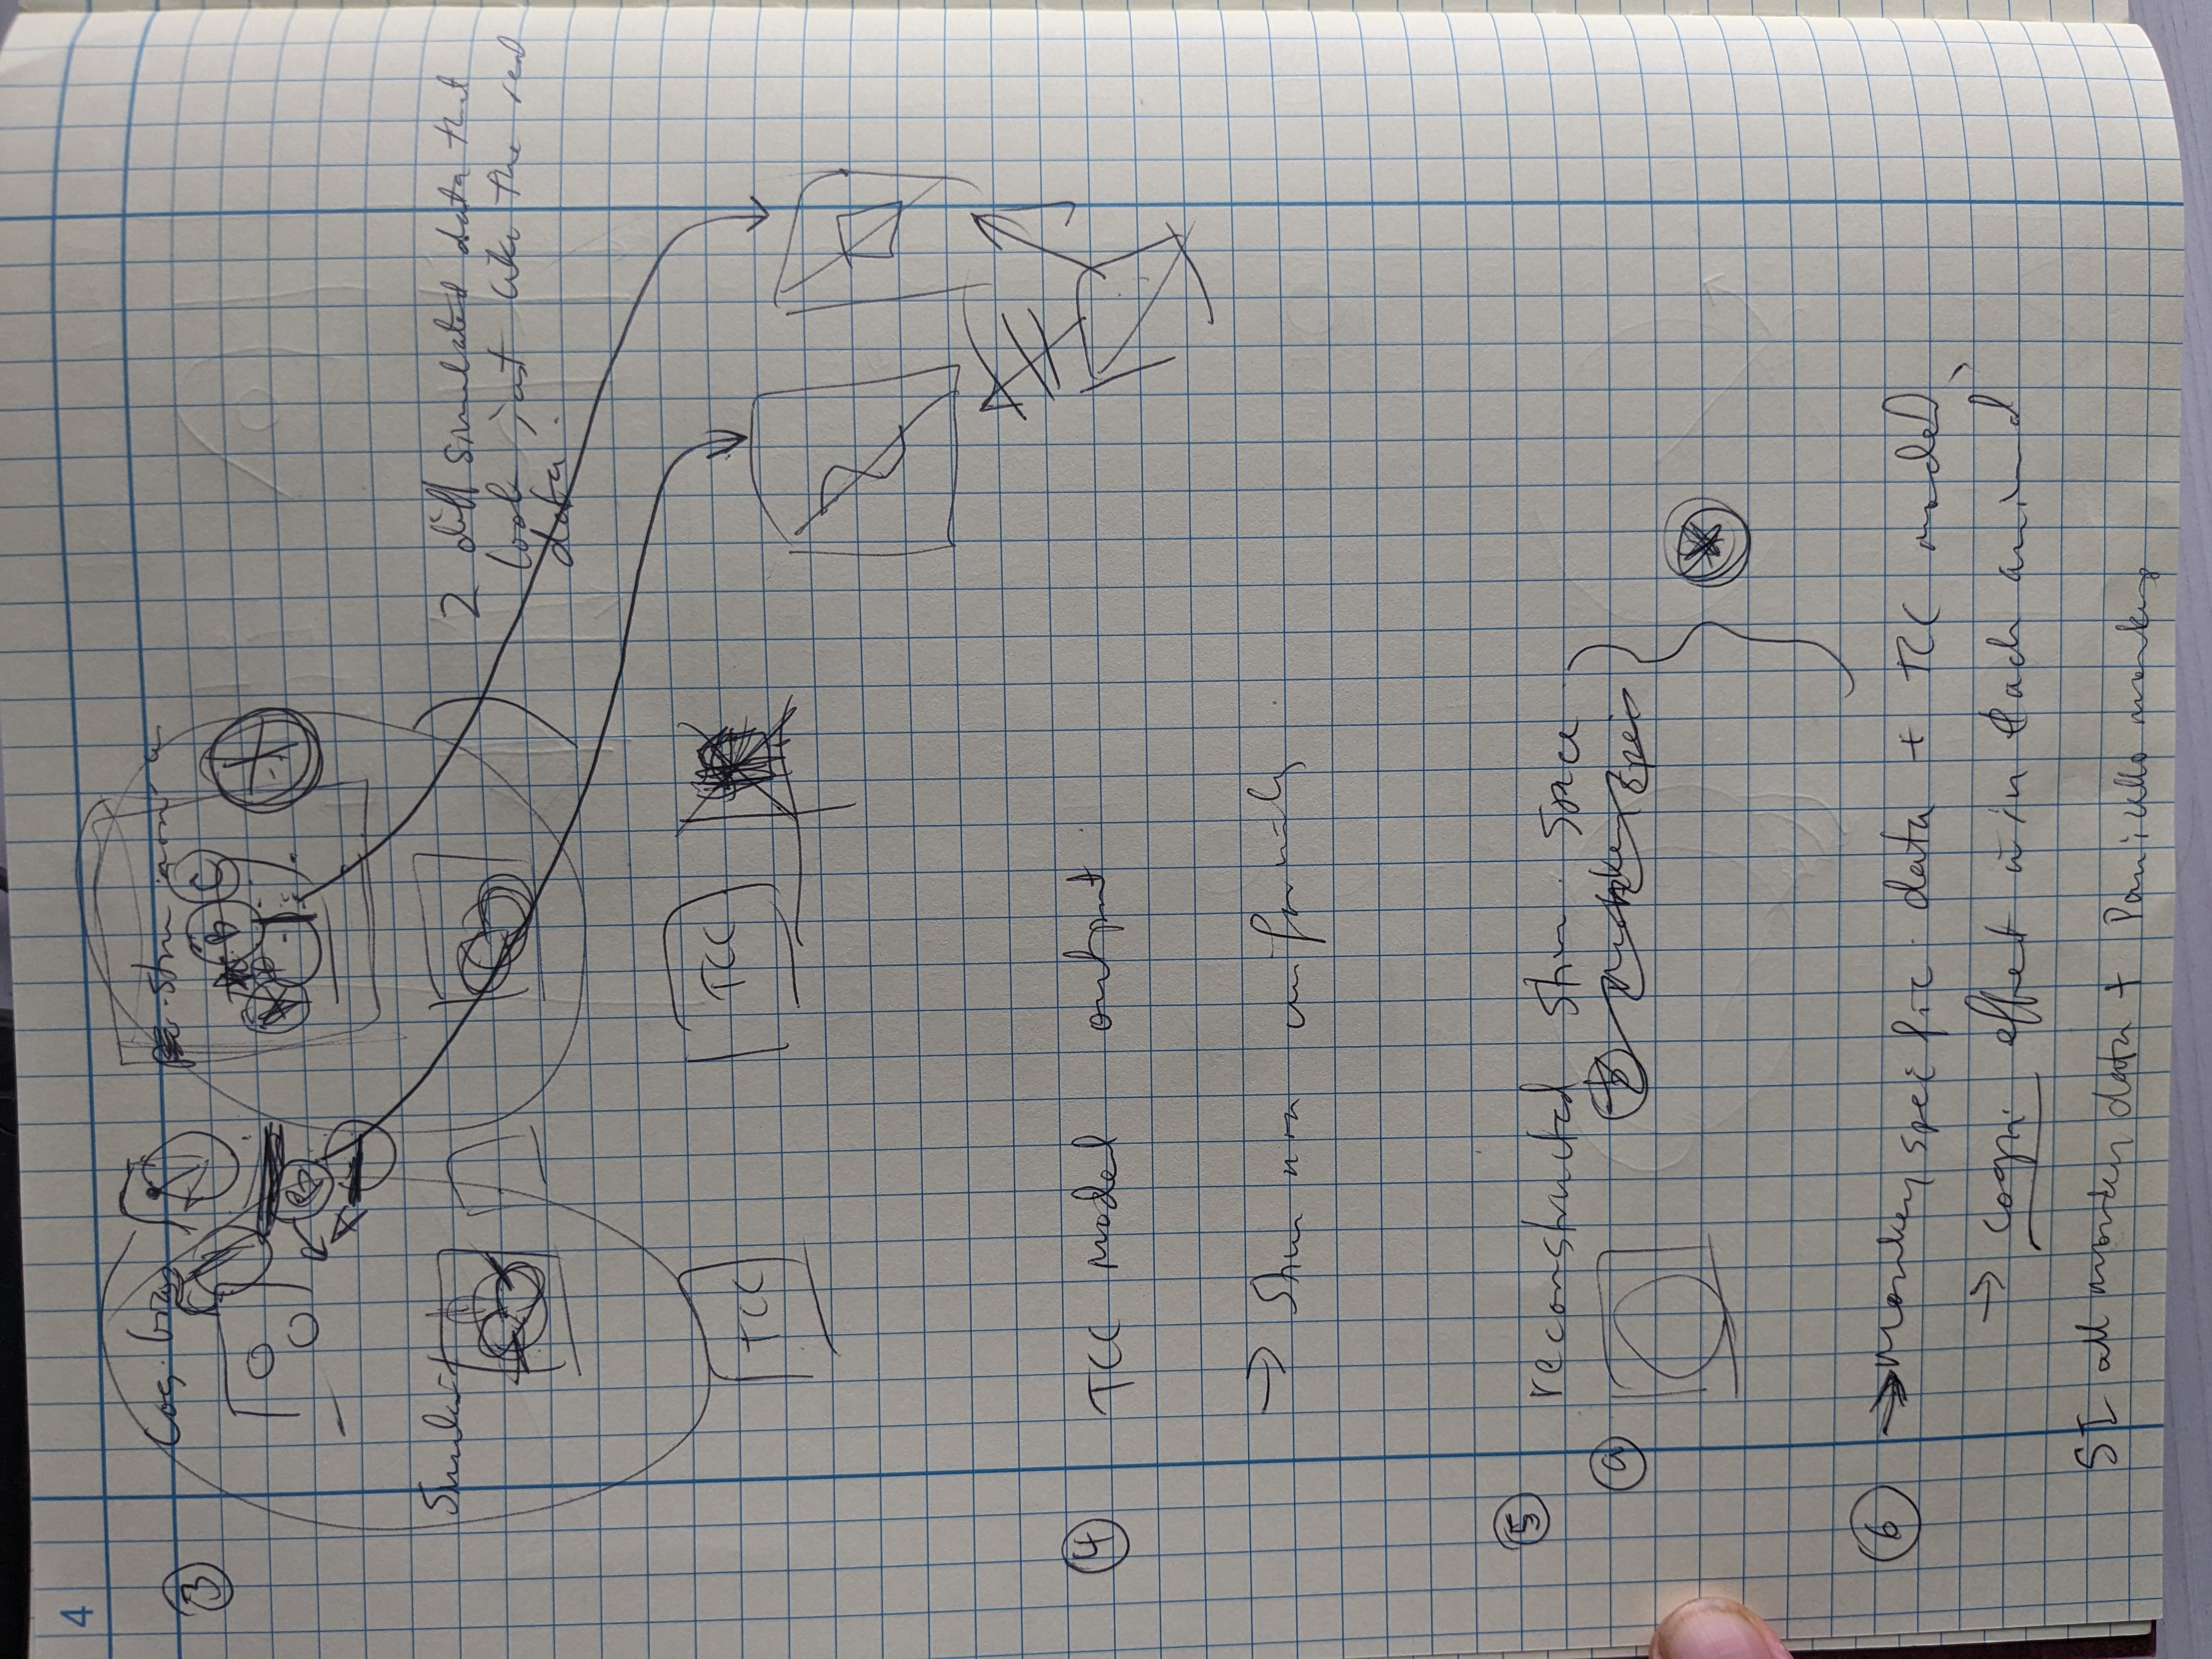 4
③ Cog. bias
stim non-u
A B C
B
Simulat
2 diff simulated data that
look just like the real
data.
TCC TCC
④ TCC model output
→ Stim non uniformity
⑤ reconstructed stim. space
ⓐ ⓑ monkey speci
⑥ → monkey specific data + TCC model
→ cogni. effect w in each animal
SI all monkey data + Panicello monkeys